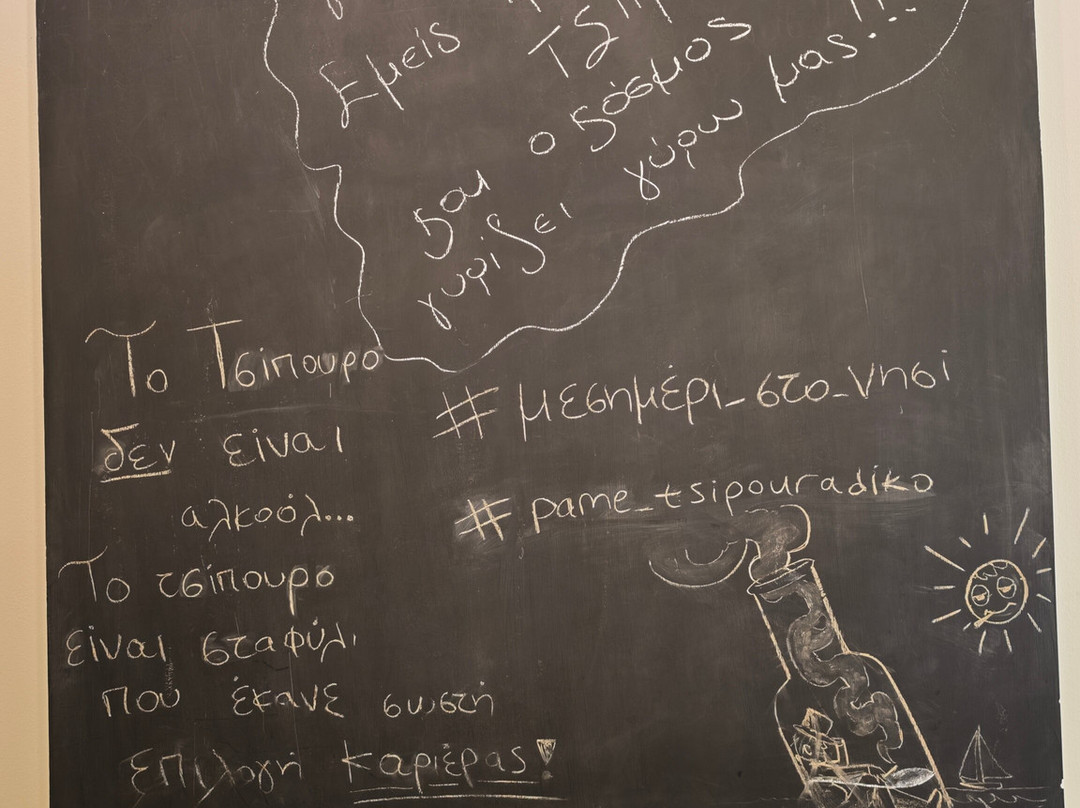 Εμείς
ο κόσμος
και
γυρίζει γύρω μας!!
Το Τσίπουρο
δεν είναι
αλκοόλ...
Το τσίπουρο
είναι σταφύλι
που έκανε σωστή
επιλογή καριέρας!
#μεσημέρι_στο_νησί
#pame_tsipouradiko